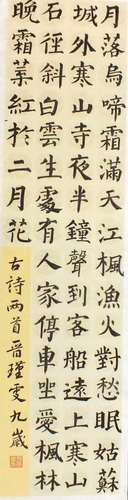 月落烏啼霜滿天江楓漁火對愁眠姑蘇
城外寒山寺夜半鐘聲到客船遠上寒山
石徑斜白雲生處有人家停車坐愛楓林
晚霜葉紅於二月花
古詩兩首晉瑾雯九歲